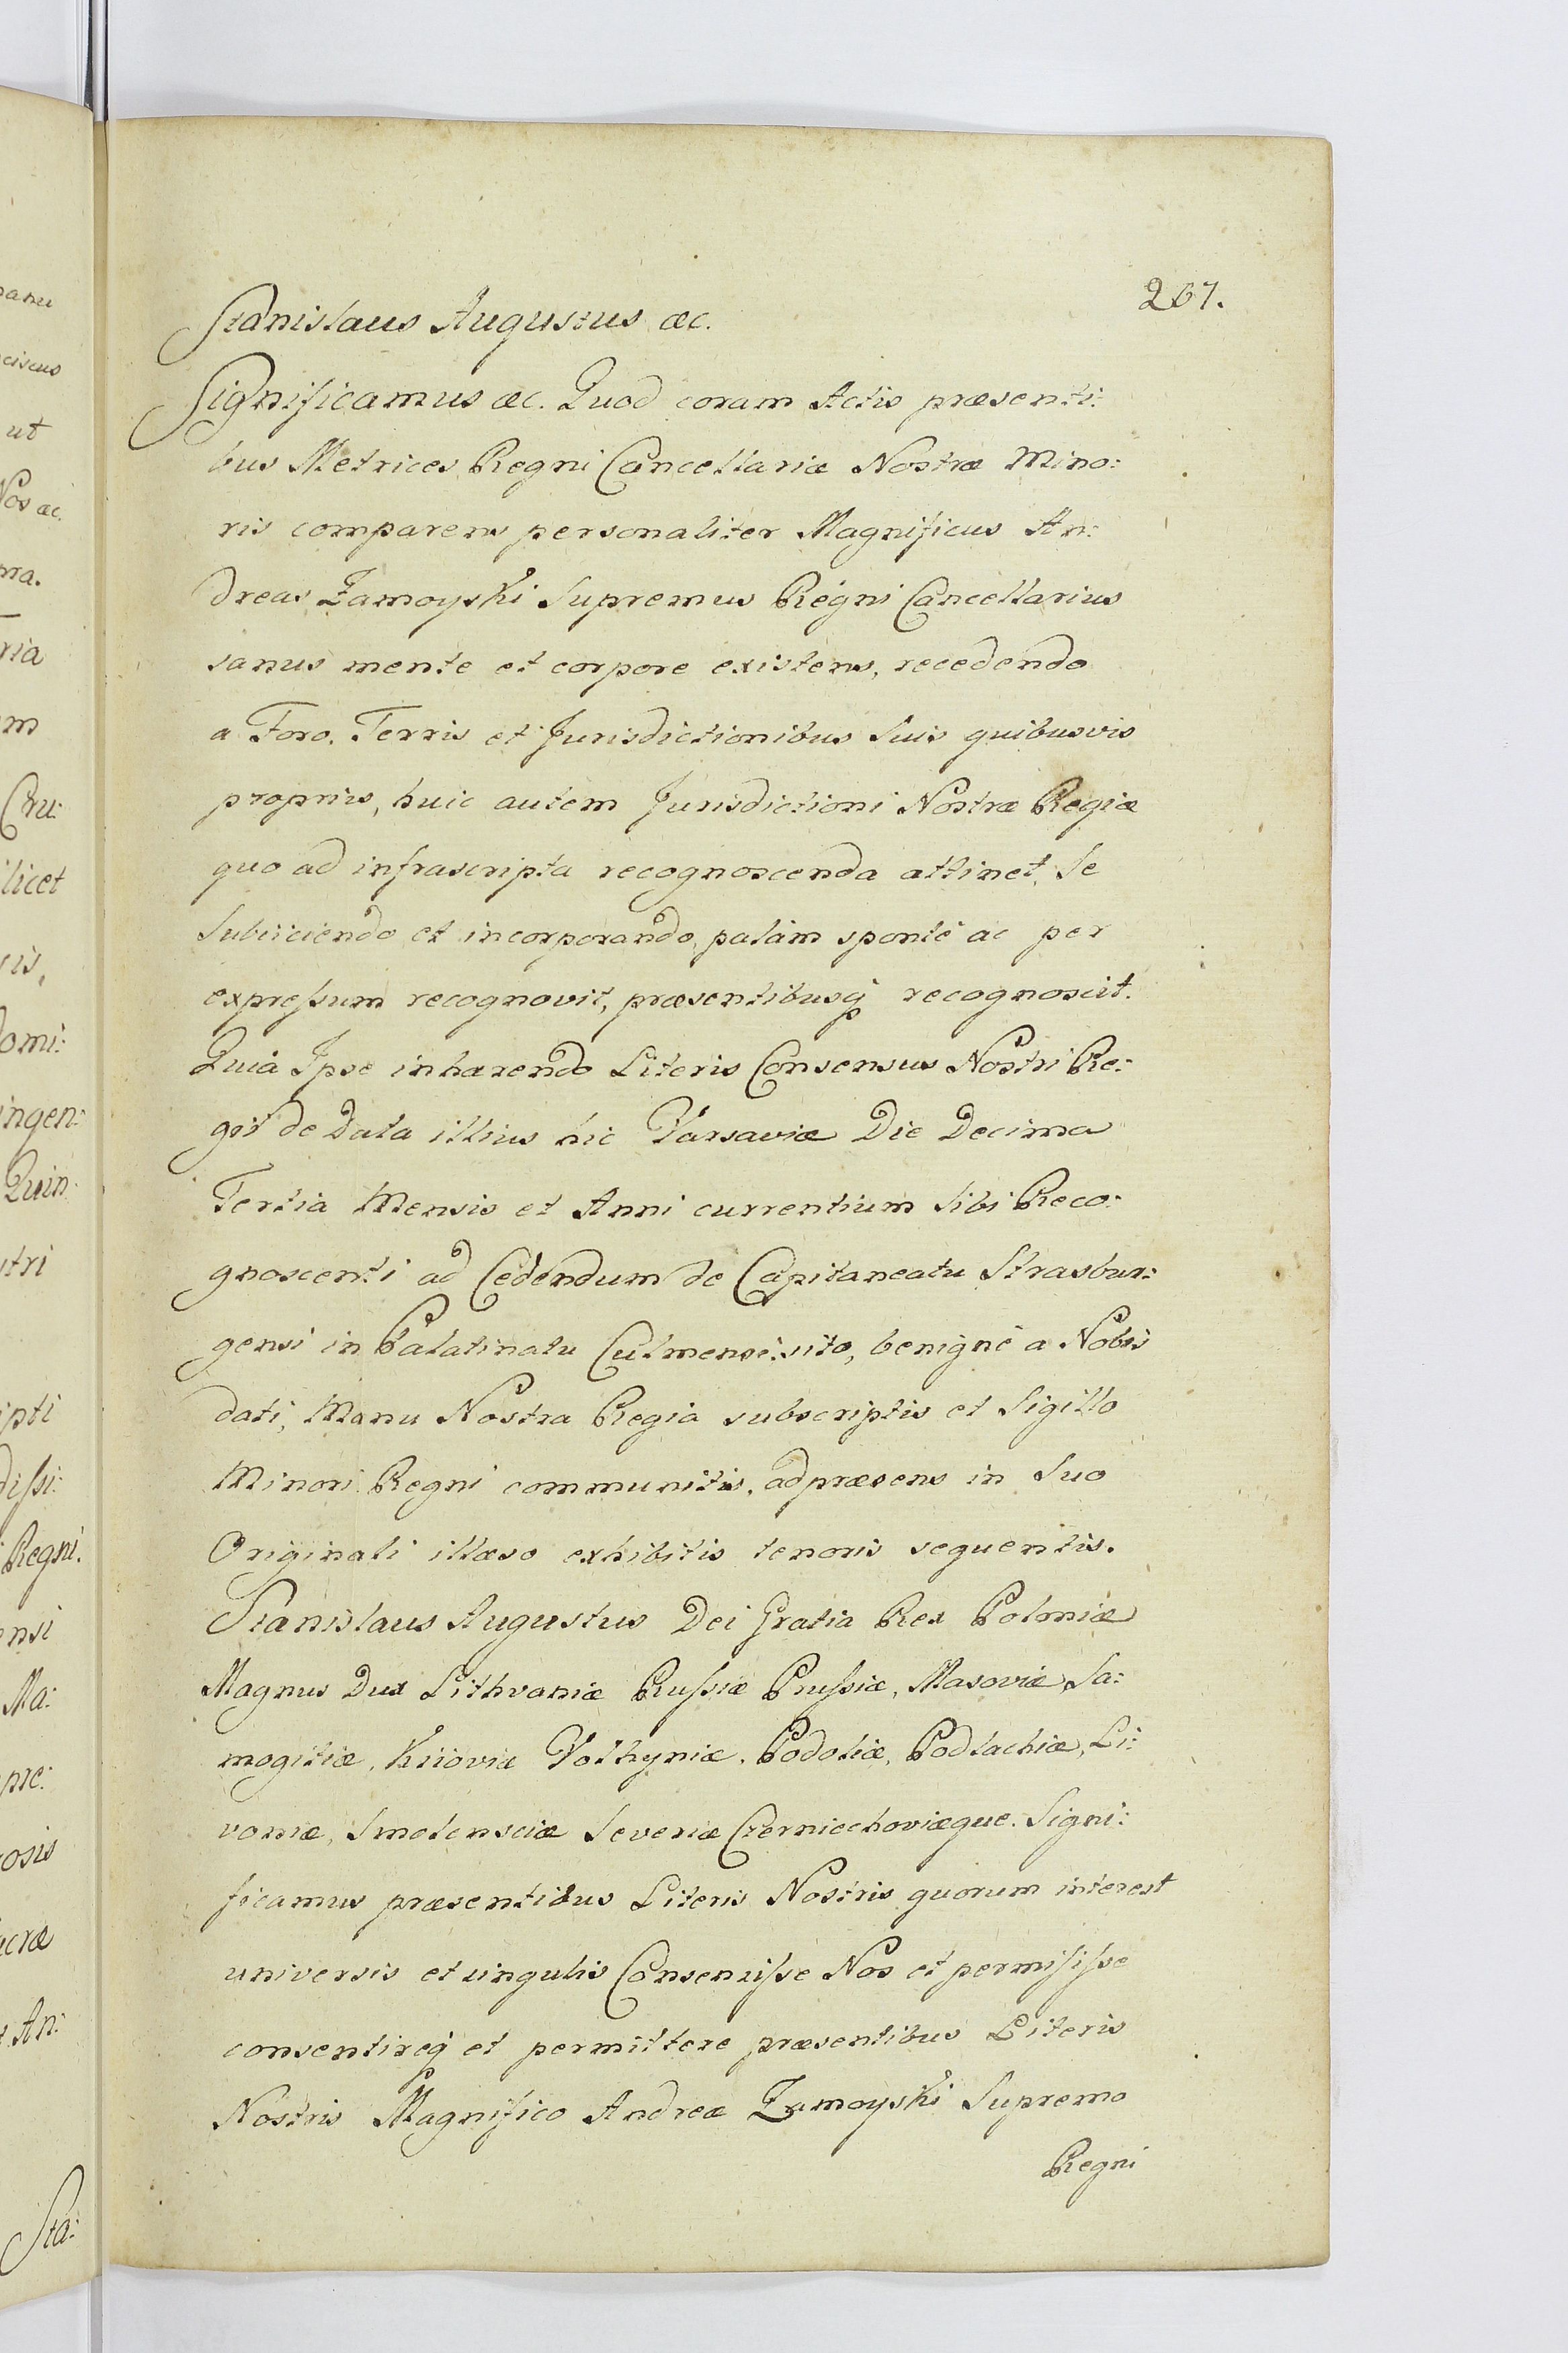 207.
Stanislaus Augustus æc.
Significamus æc. Quod coram Actis præsenti:
bus Metrices Regni Cancellariæ Nostræ Mino:
ris comparens personaliter Magnificus An:
dreas Zamoyski Supremus Regni Cancellarius
sanus mente et corpore existens, recedendo
a Foro. Terris et Jurisdictionibus Suis quibusvis
proprijs, huic autem Jurisdictioni Nostræ Regiæ
quo ad infrascripta recognoscenda attinet, Se
Subiiciendo et incorporando, palàm spontè ac per
expreſsum recognovit, præsentibusq̃ recognoscit.
Quia Ipse inhærendo Literis Consensus Nostri Re:
gii de Data illius hic Varsaviæ Die Decima
Tertia Mensis et Anni currentium Sibi Reco:
gnoscenti ad Cedendum de Capitaneatu Strasbur:
gensi in Palatinatu Culmensi sito, benignè a Nobis
dati, Manu Nostra Regia subscriptis et Sigillo
Minori Regni communitis, ad præsens in Suo
Originali illæso exhibitis tenoris sequentis.
Stanislaus Augustus Dei Gratia Rex Poloniæ
Magnus Dux Lithvaniæ Ruſsiæ Pruſsiæ, Masoviæ, Sa:
mogitiæ, Kiioviæ Volhyniæ, Podoliæ, Podlachiæ, Li:
voniæ, Smolensciæ Severiæ Czerniechoviæque. Signi:
ficamus præsentibus Literis Nostris quorum interest
universis et singulis Consensiſse Nos et permiſiſse
consentireq̃ et permittere præsentibus Literis
Nostris Magnifico Andreæ Zamoyski Supremo
Regni